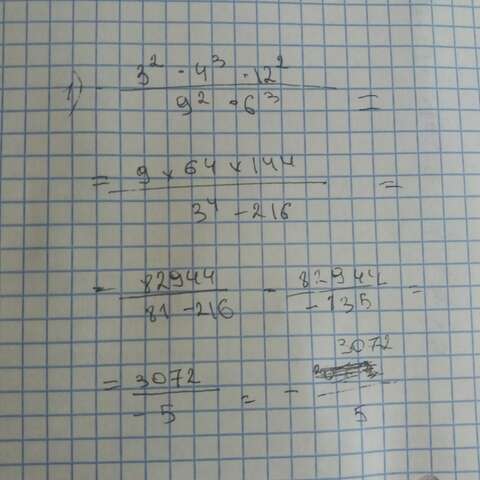 1) 3² · 4³ · 12²
9² · 6³ =
= 9 × 64 × 144
3⁴ - 216 =
= 82944
81 - 216 = 82944
- 135 =
= 3072
- 5 = - 3072
5